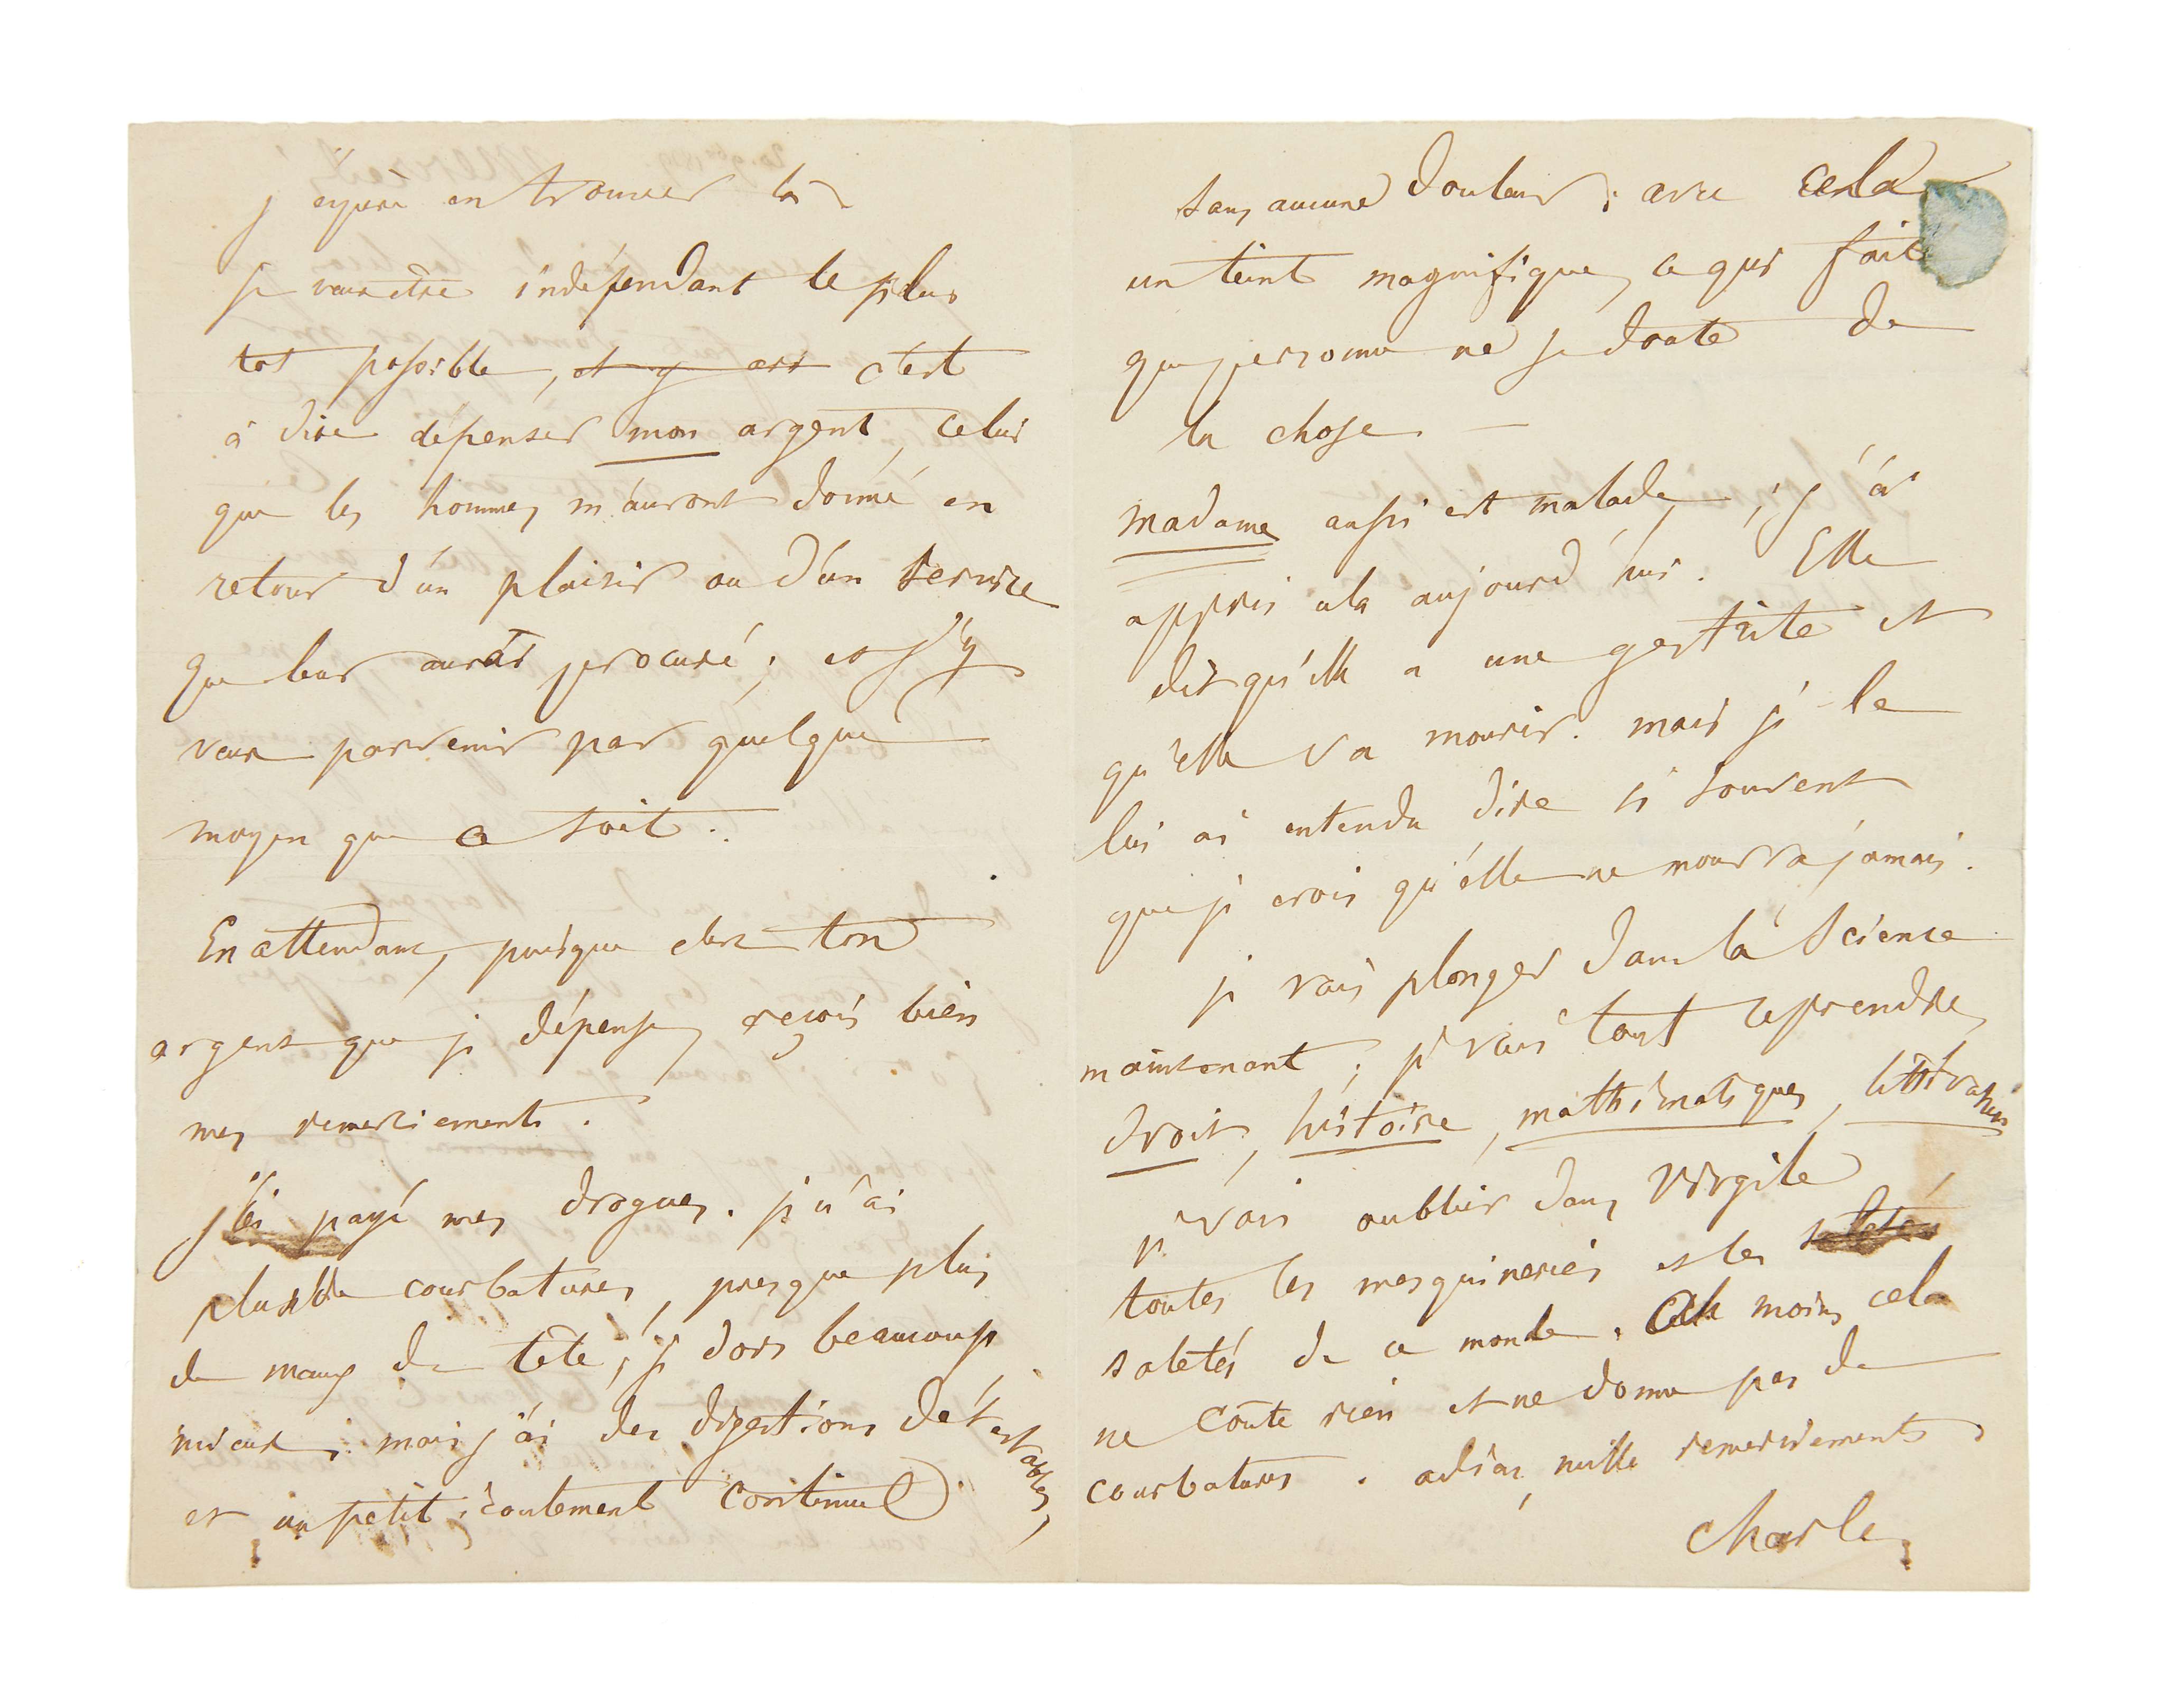 j'espère en trouver là
je veux être indépendant le plus
tot possible, et y arr c'est
à dire dépenser mon argent, celui
que les hommes m'auront donné en
retour d'un plaisir ou d'un service
que leur aurai procuré; et j'y
veux parvenir par quelque
moyen que ce soit.
En attendant, puisque c'est ton
argent que je dépense, reçois bien
mes remerciements.
j'ai payé mes drogues. je n'ai
plus de courbatures, presque plus
de maux de tête, je dors beaucoup
mieux; mais j'ai des digestions détestables,
et un petit écoulement continuel
sans aucune douleur; avec cela
un teint magnifique, ce qui fait
que personne ne se doute de
la chose —
Madame aussi est malade; j'ai
appris cela aujourd'hui. Elle
dit qu'elle a une gastrite et
qu'elle va mourir. mais je le
lui ai entendu dire si souvent
que je crois qu'elle ne mourra jamais.
je vais plonger dans la Science
maintenant; je vais tout reprendre,
droit, histoire, mathématiques, littérature
je vais oublier dans Virgile
toutes les mesquineries et les saletés
saletés de ce monde. Au moins cela
ne coûte rien et ne donne pas de
courbatures. adieu, mille remerciements.
Charles